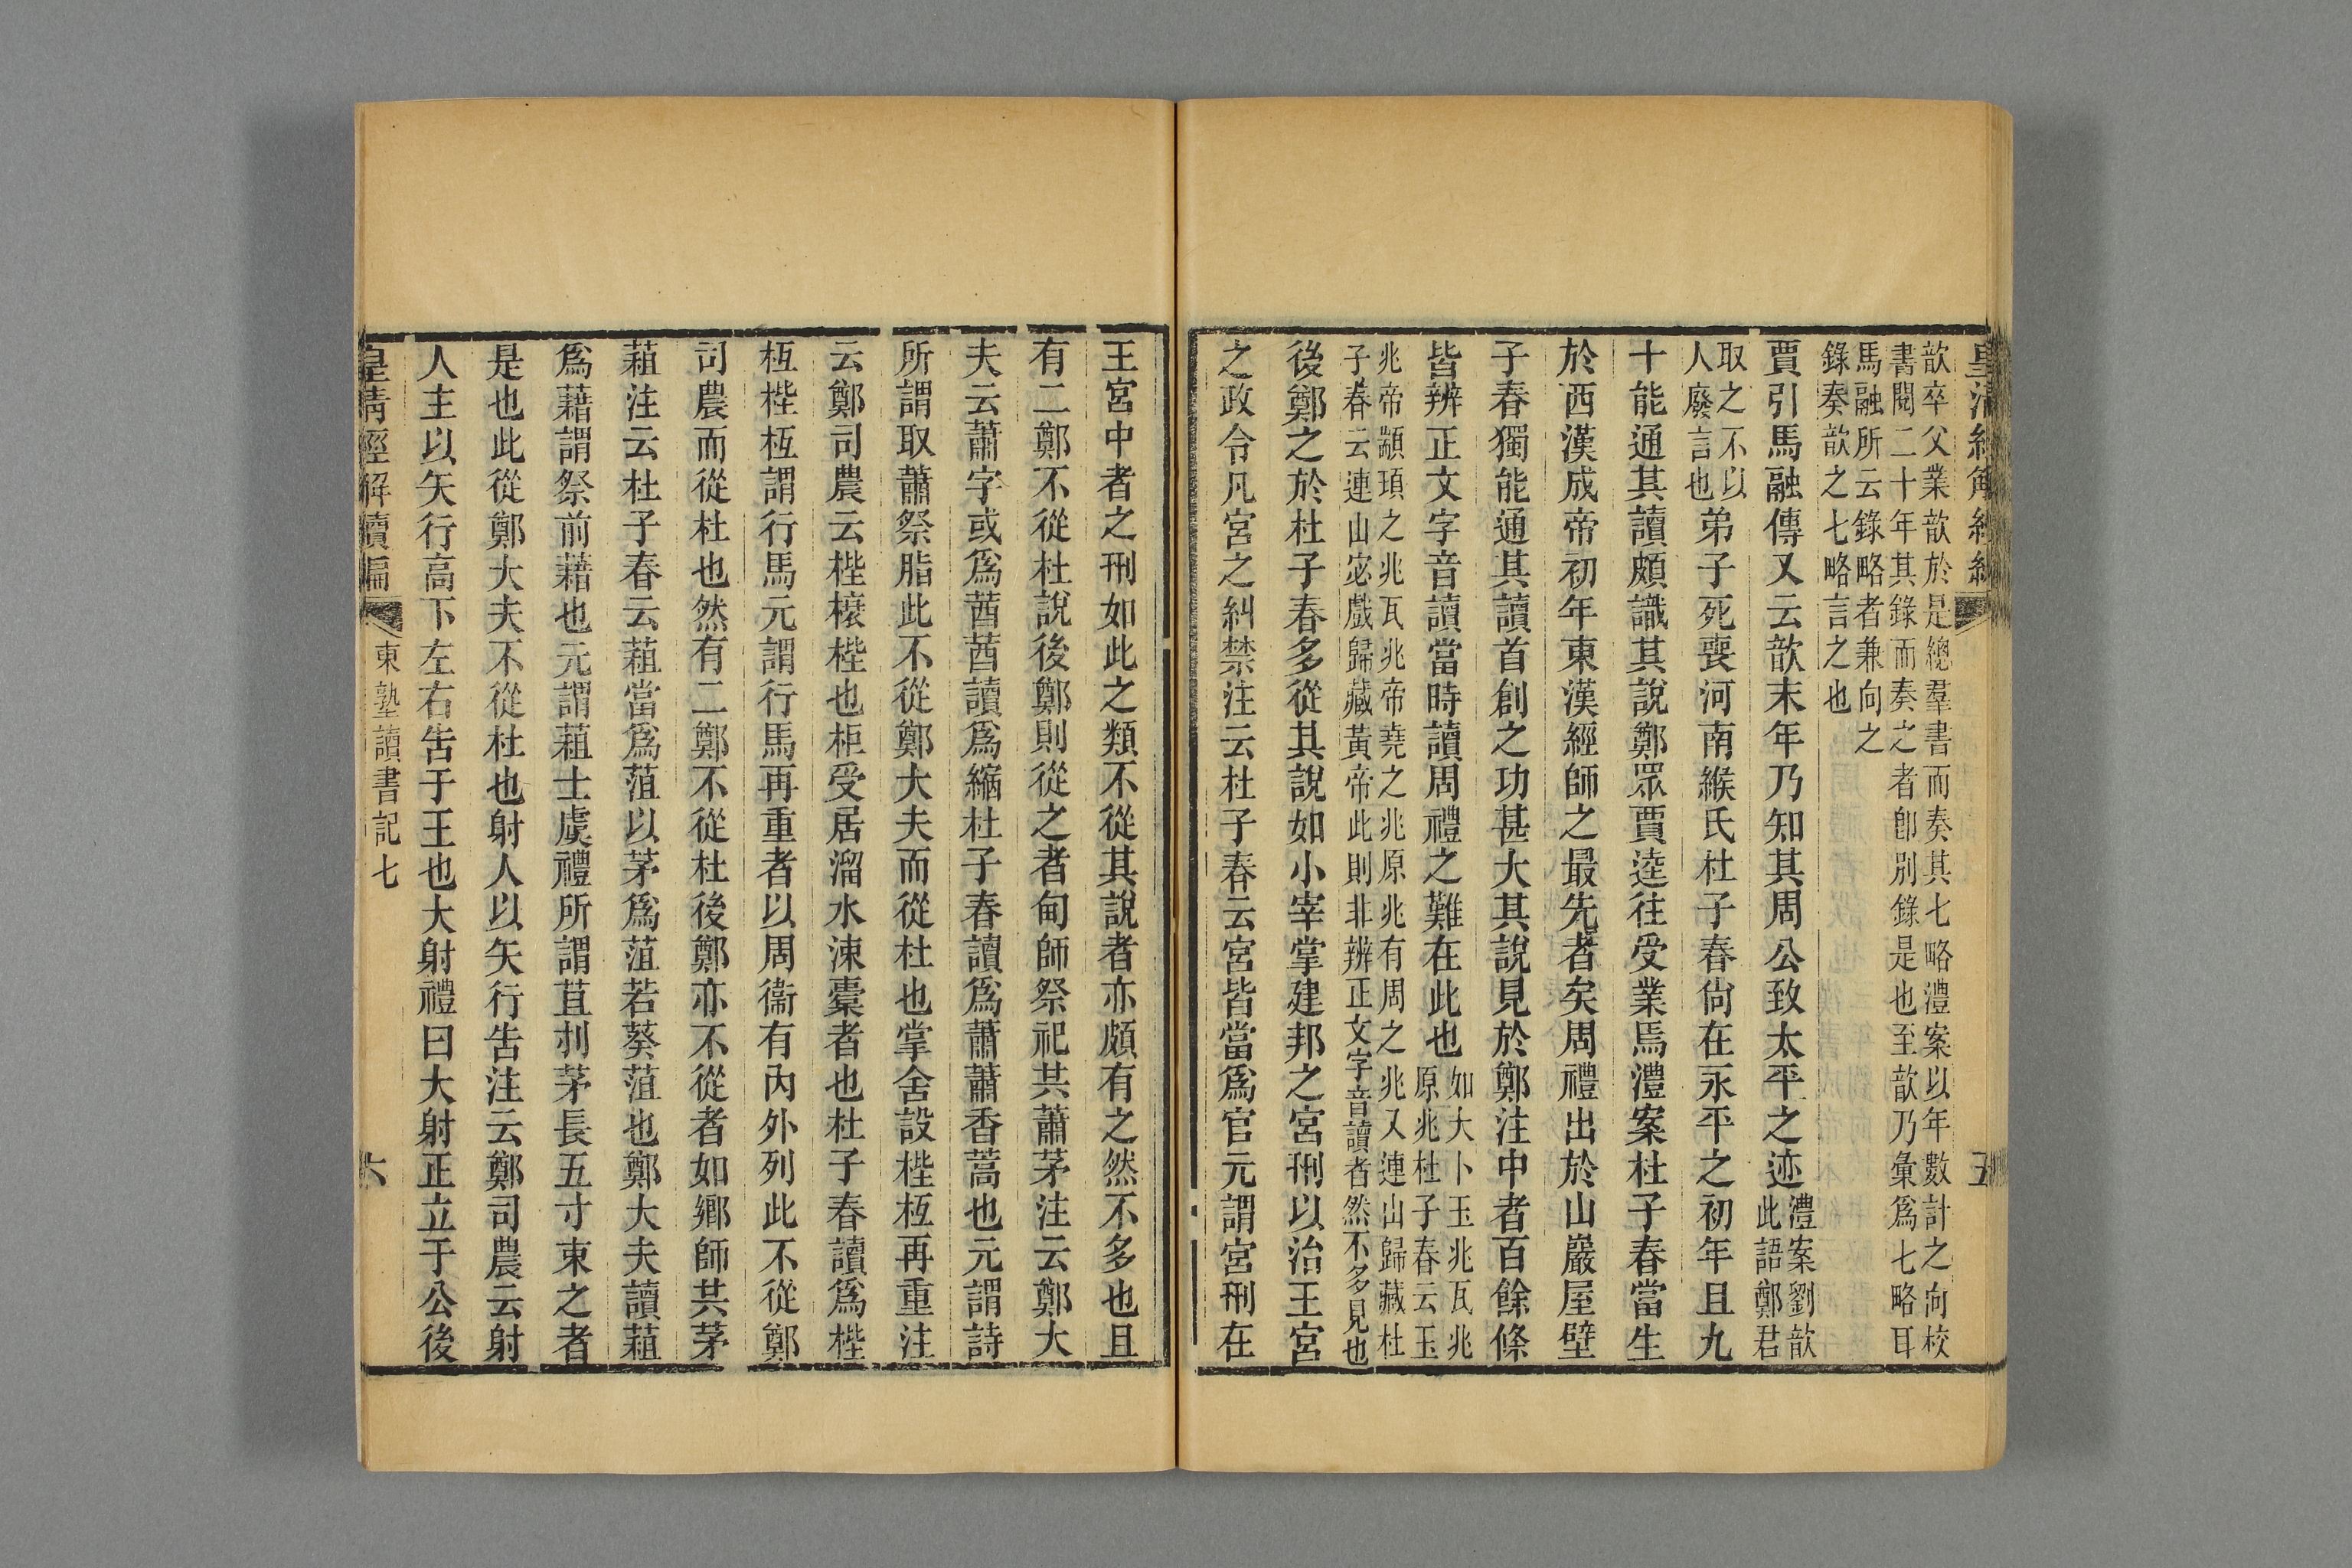 皇清經解續編
五
歆卒父業歆於是總羣書而奏其七略澧案以年數計之向校
書閱二十年其錄而奏之者卽別錄是也至歆乃彙爲七略耳
馬融所云錄略者兼向之
錄奏歆之七略言之也
賈引馬融傳又云歆末年乃知其周公致太平之迹澧案劉歆
此語鄭君
取之不以
人廢言也弟子死喪河南緱氏杜子春尙在永平之初年且九
十能通其讀頗識其說鄭眾賈逵往受業焉澧案杜子春當生
於西漢成帝初年東漢經師之最先者矣周禮出於山巖屋壁
子春獨能通其讀首創之功甚大其說見於鄭注中者百餘條
皆辨正文字音讀當時讀周禮之難在此也如大卜玉兆瓦兆
原兆杜子春云玉
兆帝顓頊之兆瓦兆帝堯之兆原兆有周之兆又連山歸藏杜
子春云連山宓戲歸藏黃帝此則非辨正文字音讀者然不多見也
後鄭之於杜子春多從其說如小宰掌建邦之宮刑以治王宮
之政令凡宮之糾禁注云杜子春云宮皆當爲官元謂宮刑在
王宮中者之刑如此之類不從其說者亦頗有之然不多也且
有二鄭不從杜說後鄭則從之者甸師祭祀共蕭茅注云鄭大
夫云蕭字或爲莤莤讀爲縮杜子春讀爲蕭蕭香蒿也元謂詩
所謂取蕭祭脂此不從鄭大夫而從杜也掌舍設梐枑再重注
云鄭司農云梐榱梐也柜受居溜水涑橐者也杜子春讀爲梐
枑梐枑謂行馬元謂行馬再重者以周衞有內外列此不從鄭
司農而從杜也然有二鄭不從杜後鄭亦不從者如鄉師共茅
蒩注云杜子春云蒩當爲菹以茅爲菹若葵菹也鄭大夫讀蒩
爲藉謂祭前藉也元謂蒩士虞禮所謂苴刌茅長五寸束之者
是也此從鄭大夫不從杜也射人以矢行吿注云鄭司農云射
人主以矢行高下左右吿于王也大射禮曰大射正立于公後
皇清經解續編
東塾讀書記七
六